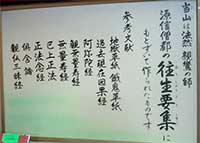 当山は法然 親鸞の師
源信僧都の往生要集に
もとずいて作られたものです
参考文献
地獄草紙 餓鬼草紙
過去現在因果経
阿弥陀経
観無量寿経
無量寿経
正法念経
倶舎論
観仏三昧経